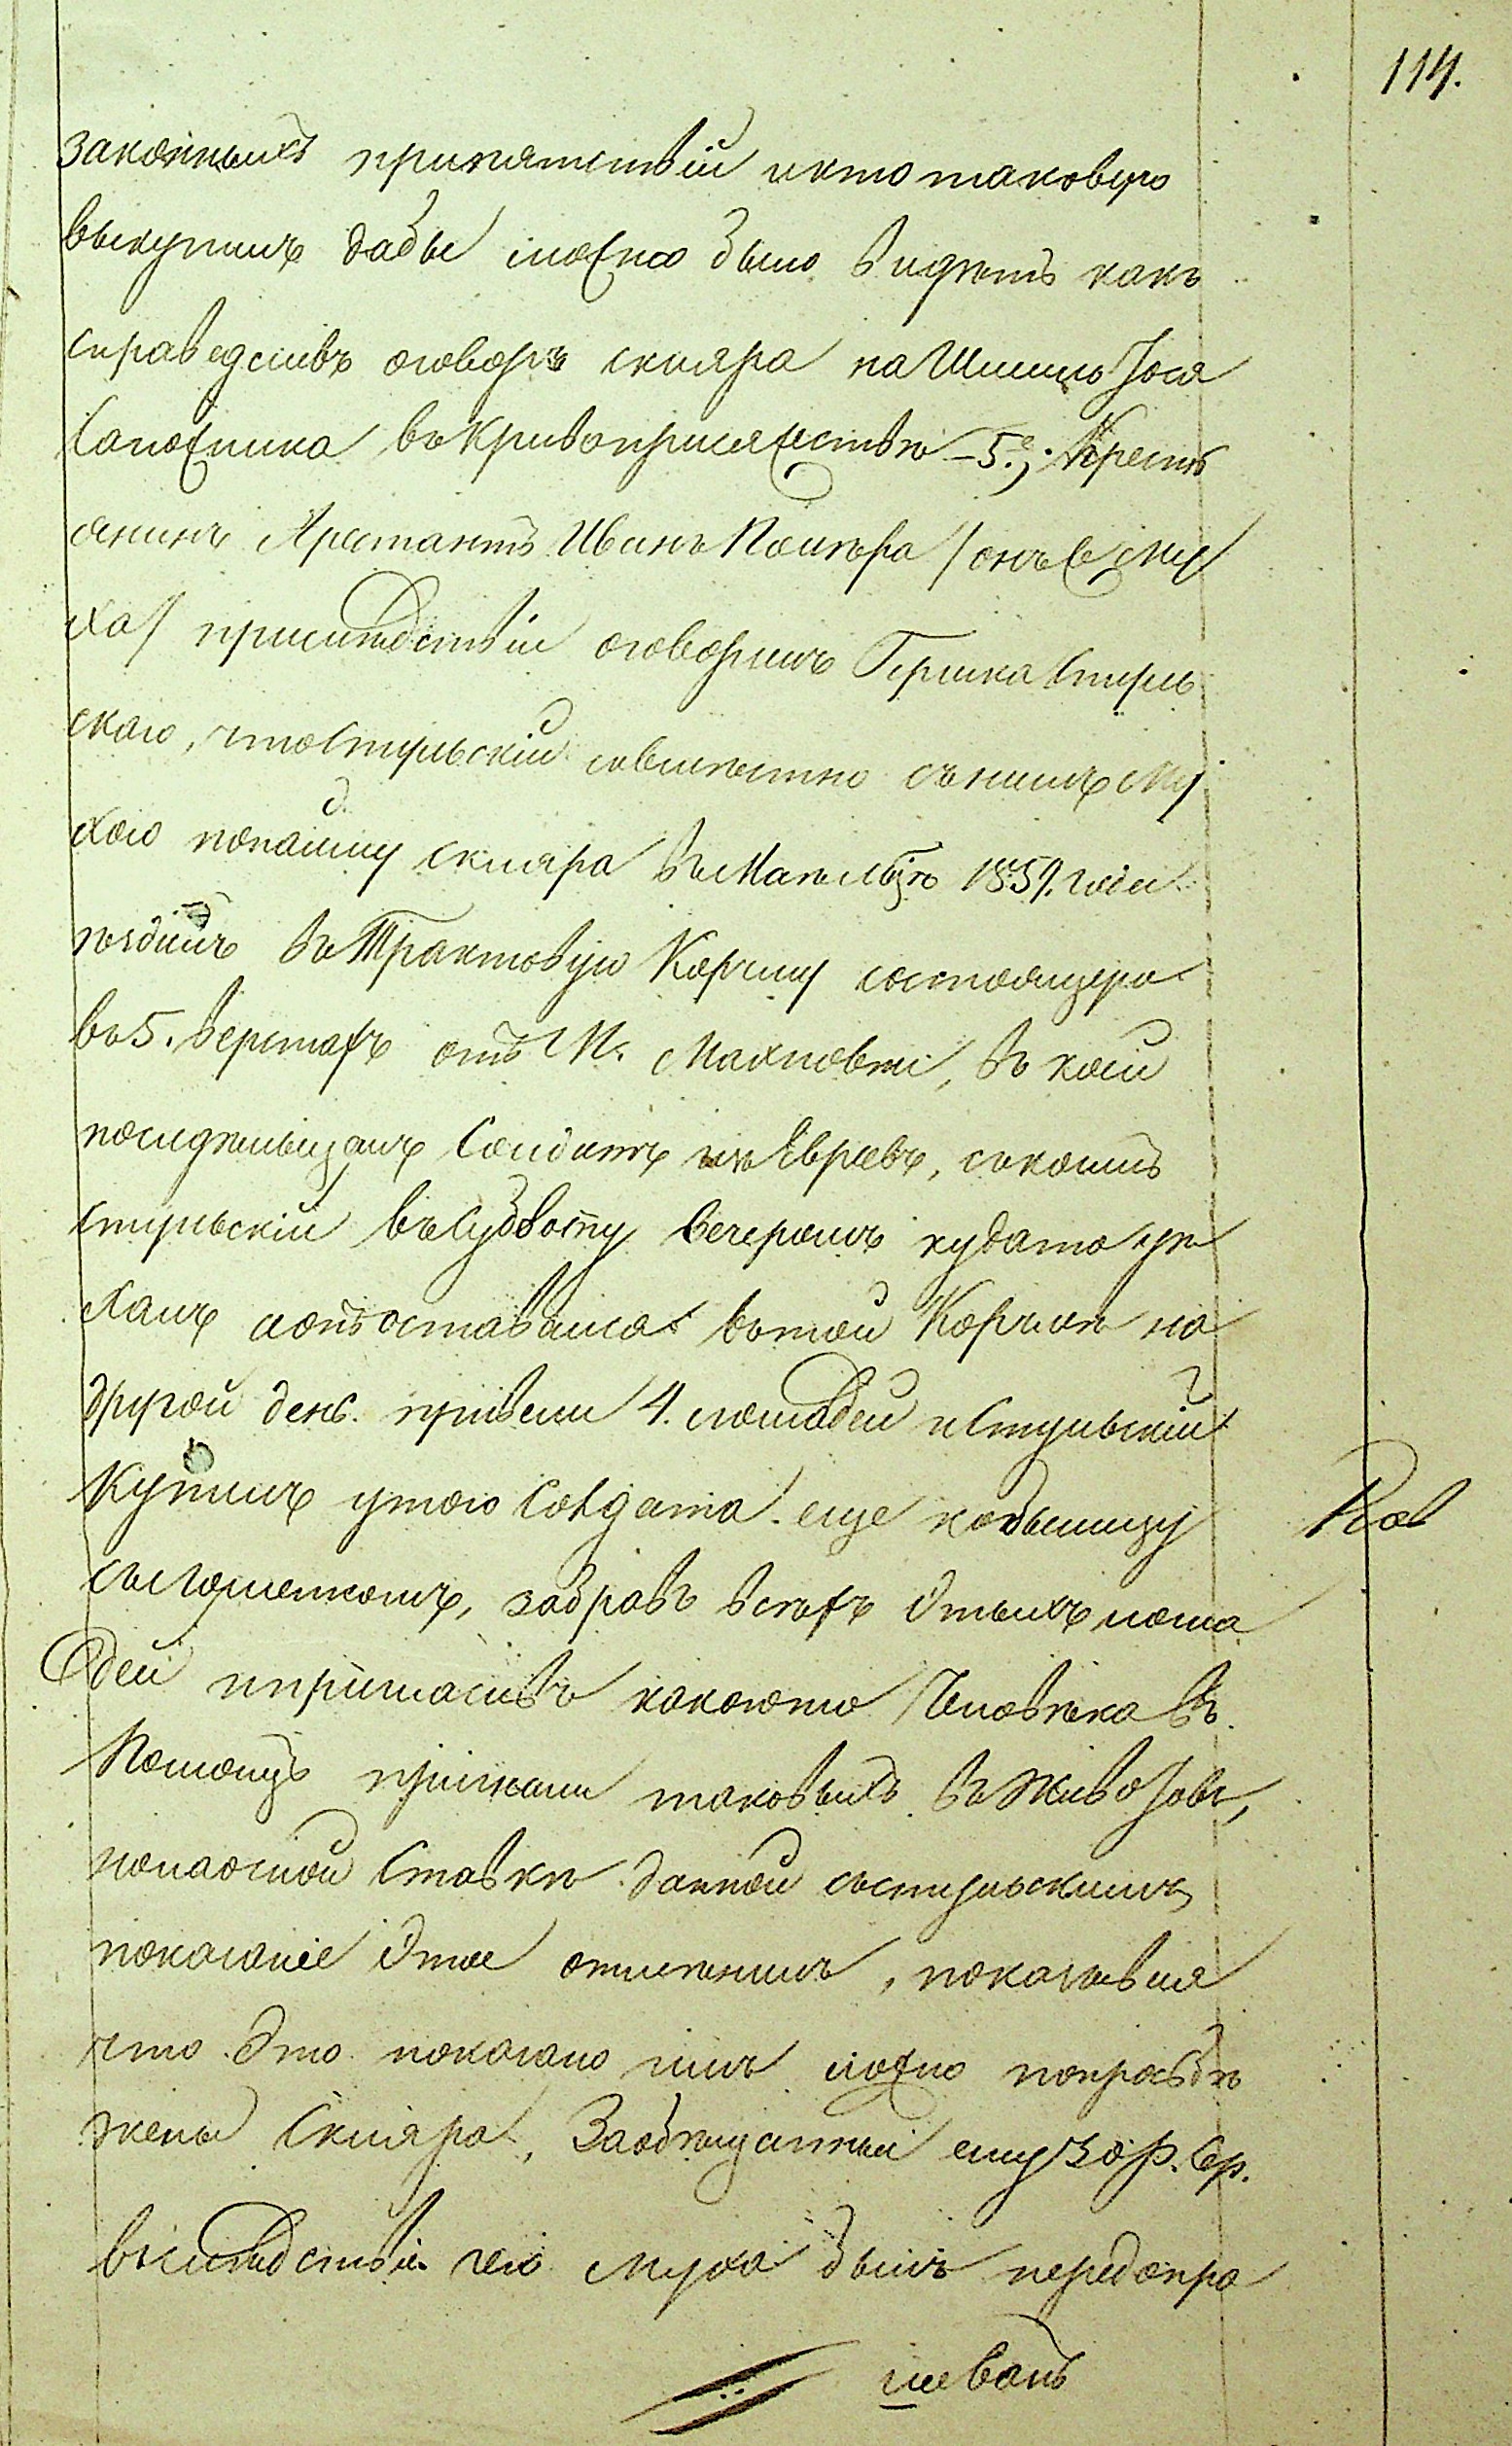 114.
законныхъ препятствій и кто таковую
выкупилъ дабы можно было видѣть какъ
справедливъ оговоръ скляра на Шлиму Іося
Сапожника въ Кривоприсяжествѣ – 5е.; Кресть
янинъ Арестантъ Иванъ /онъ же Му
ха/ при слѣдствіи оговорилъ Гершка Стуль
скаго, что Стульскій совмѣстно съ нимъ Му
хою по найму скляра въ Маѣ м-цѣ 1859. года
ѣздилъ въ Трактовую Корчму состоящую
въ 5. верстахъ отъ М. Махновки, въ коей
посидѣльщикомъ Солдатъ изъ Евреевъ, самъ
Стульскій въ Субботу вечеромъ куда то уѣ
халъ а онъ оставался въ той Корчмѣ на
другой день. привели 4. лошадей и Стульскій
купилъ у того Солдата еще кобылицу
съ лошенкомъ, забравъ всѣхъ этыхъ лоша
дей и пригласивъ какого то Человѣка въ
Помощь пригнали таковыхъ въ Животовъ,
но на очной ставкѣ данной съ Стульскимъ
показаніе этое отмѣнилъ, показывая
что это показано имъ ложно по просьбѣ
жены Скляра, за обѣщанныи ему 30 р. Сер.
вслѣдствіе чего Муха былъ передопра
шеванъ